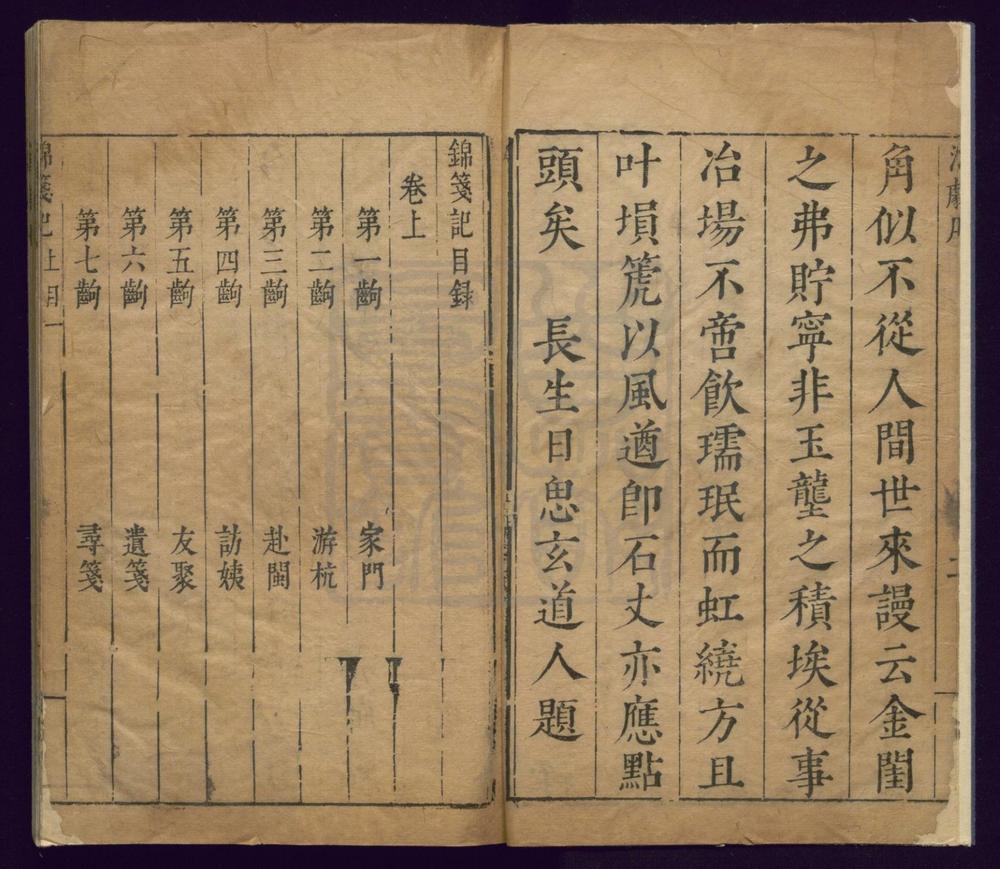 角似不從人間世來謾云金閨
之弗貯寧非玉壟之積埃從事
冶場不啻飲瓀珉而虹繞方且
叶塤箎以風遒即石丈亦應點
頭矣 長生日思玄道人題
二
錦箋記目録
卷上
第一齣 家門
第二齣 游杭
第三齣 赴閩
第四齣 訪姨
第五齣 友聚
第六齣 遺箋
第七齣 尋箋
錦箋記 上目 一